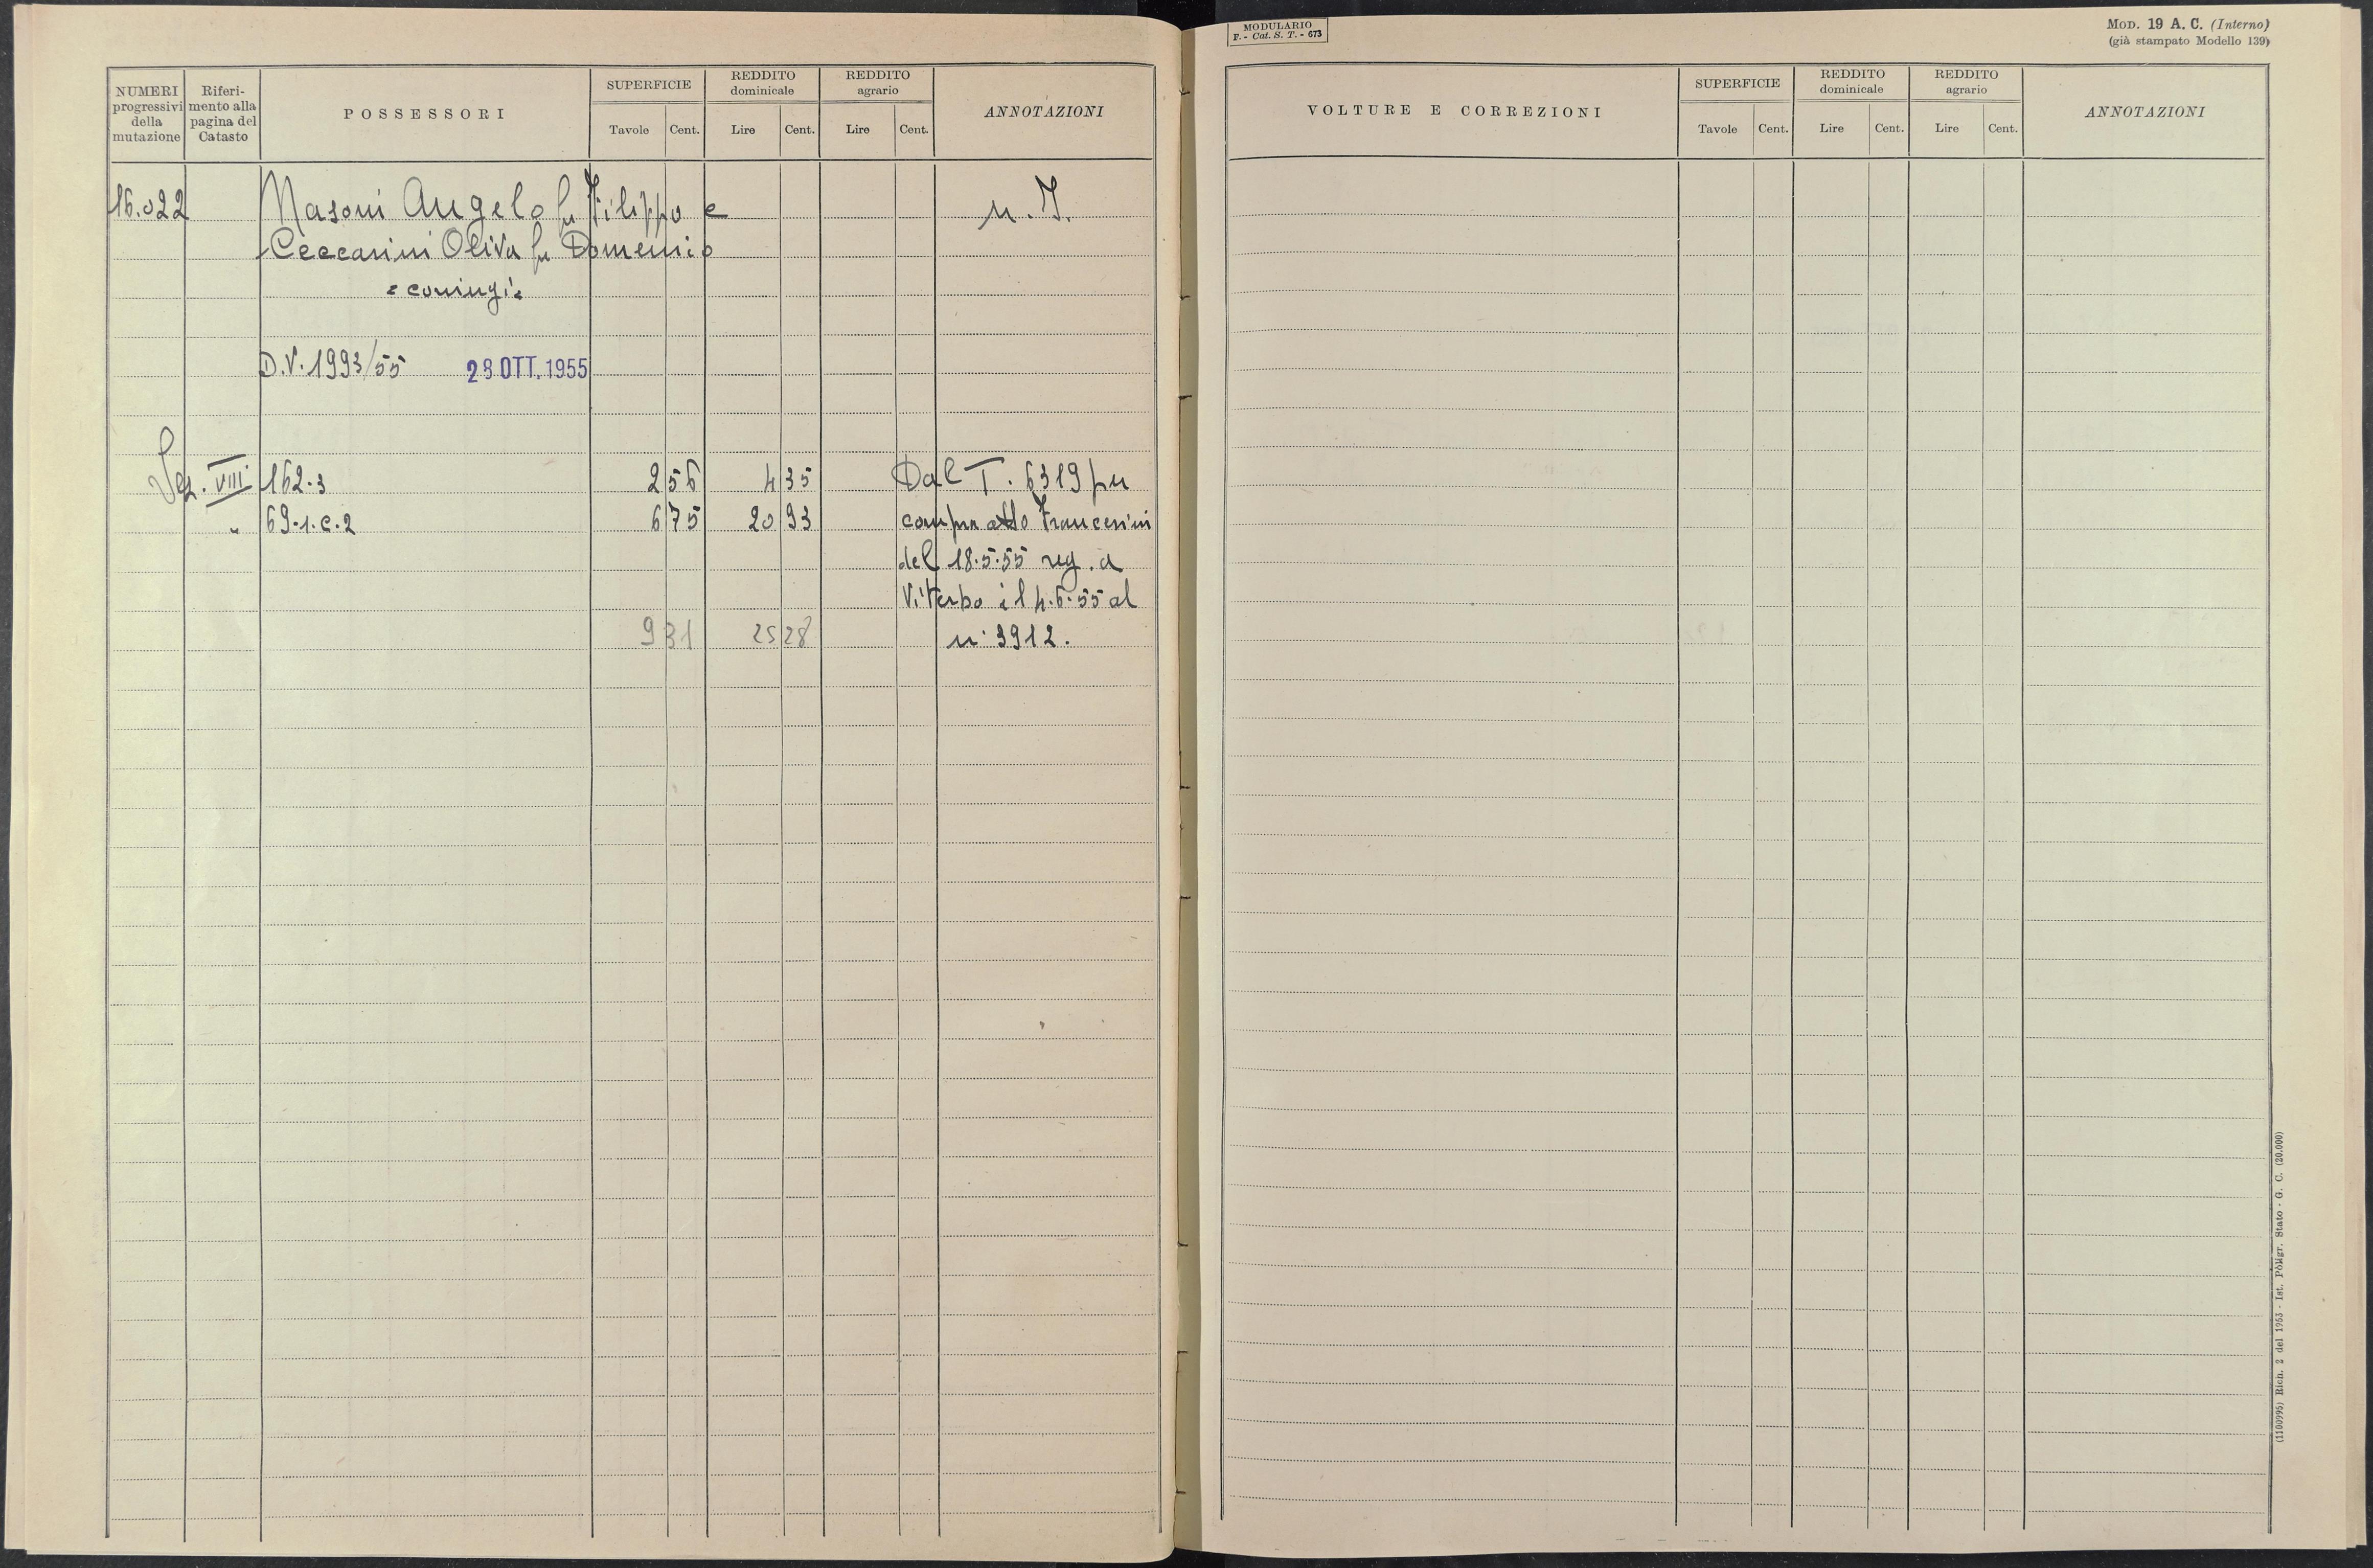 NUMERI progressivi della mutazione
Riferimento alla pagina del Catasto
POSSESSORI
SUPERFICIE
Tavole Cent.
REDDITO dominicale
Lire Cent.
REDDITO agrario
Lire Cent.
ANNOTAZIONI
16.022 Masoni Angelo fu Filippo e n. I.
Ceccarini Oliva fu Domenico
= coniugi =
D.V. 1993/55 28 OTT. 1955
Sez. VIII 162.3 2 56 4 35 Dal T. 6319 per
" 69.1.C.2 6 75 20 93 compra atto Francesini
del 18.5.55 reg. a
Viterbo il 4.6.55 al
9 31 25 28 n. 3912.
MODULARIO
F. - Cat. S. T. - 673
MOD. 19 A. C. (Interno)
(già stampato Modello 139)
VOLTURE E CORREZIONI
SUPERFICIE
Tavole Cent.
REDDITO dominicale
Lire Cent.
REDDITO agrario
Lire Cent.
ANNOTAZIONI
(1100995) Rich. 2 del 1953 - Ist. Poligr. Stato - G. C. (20.000)